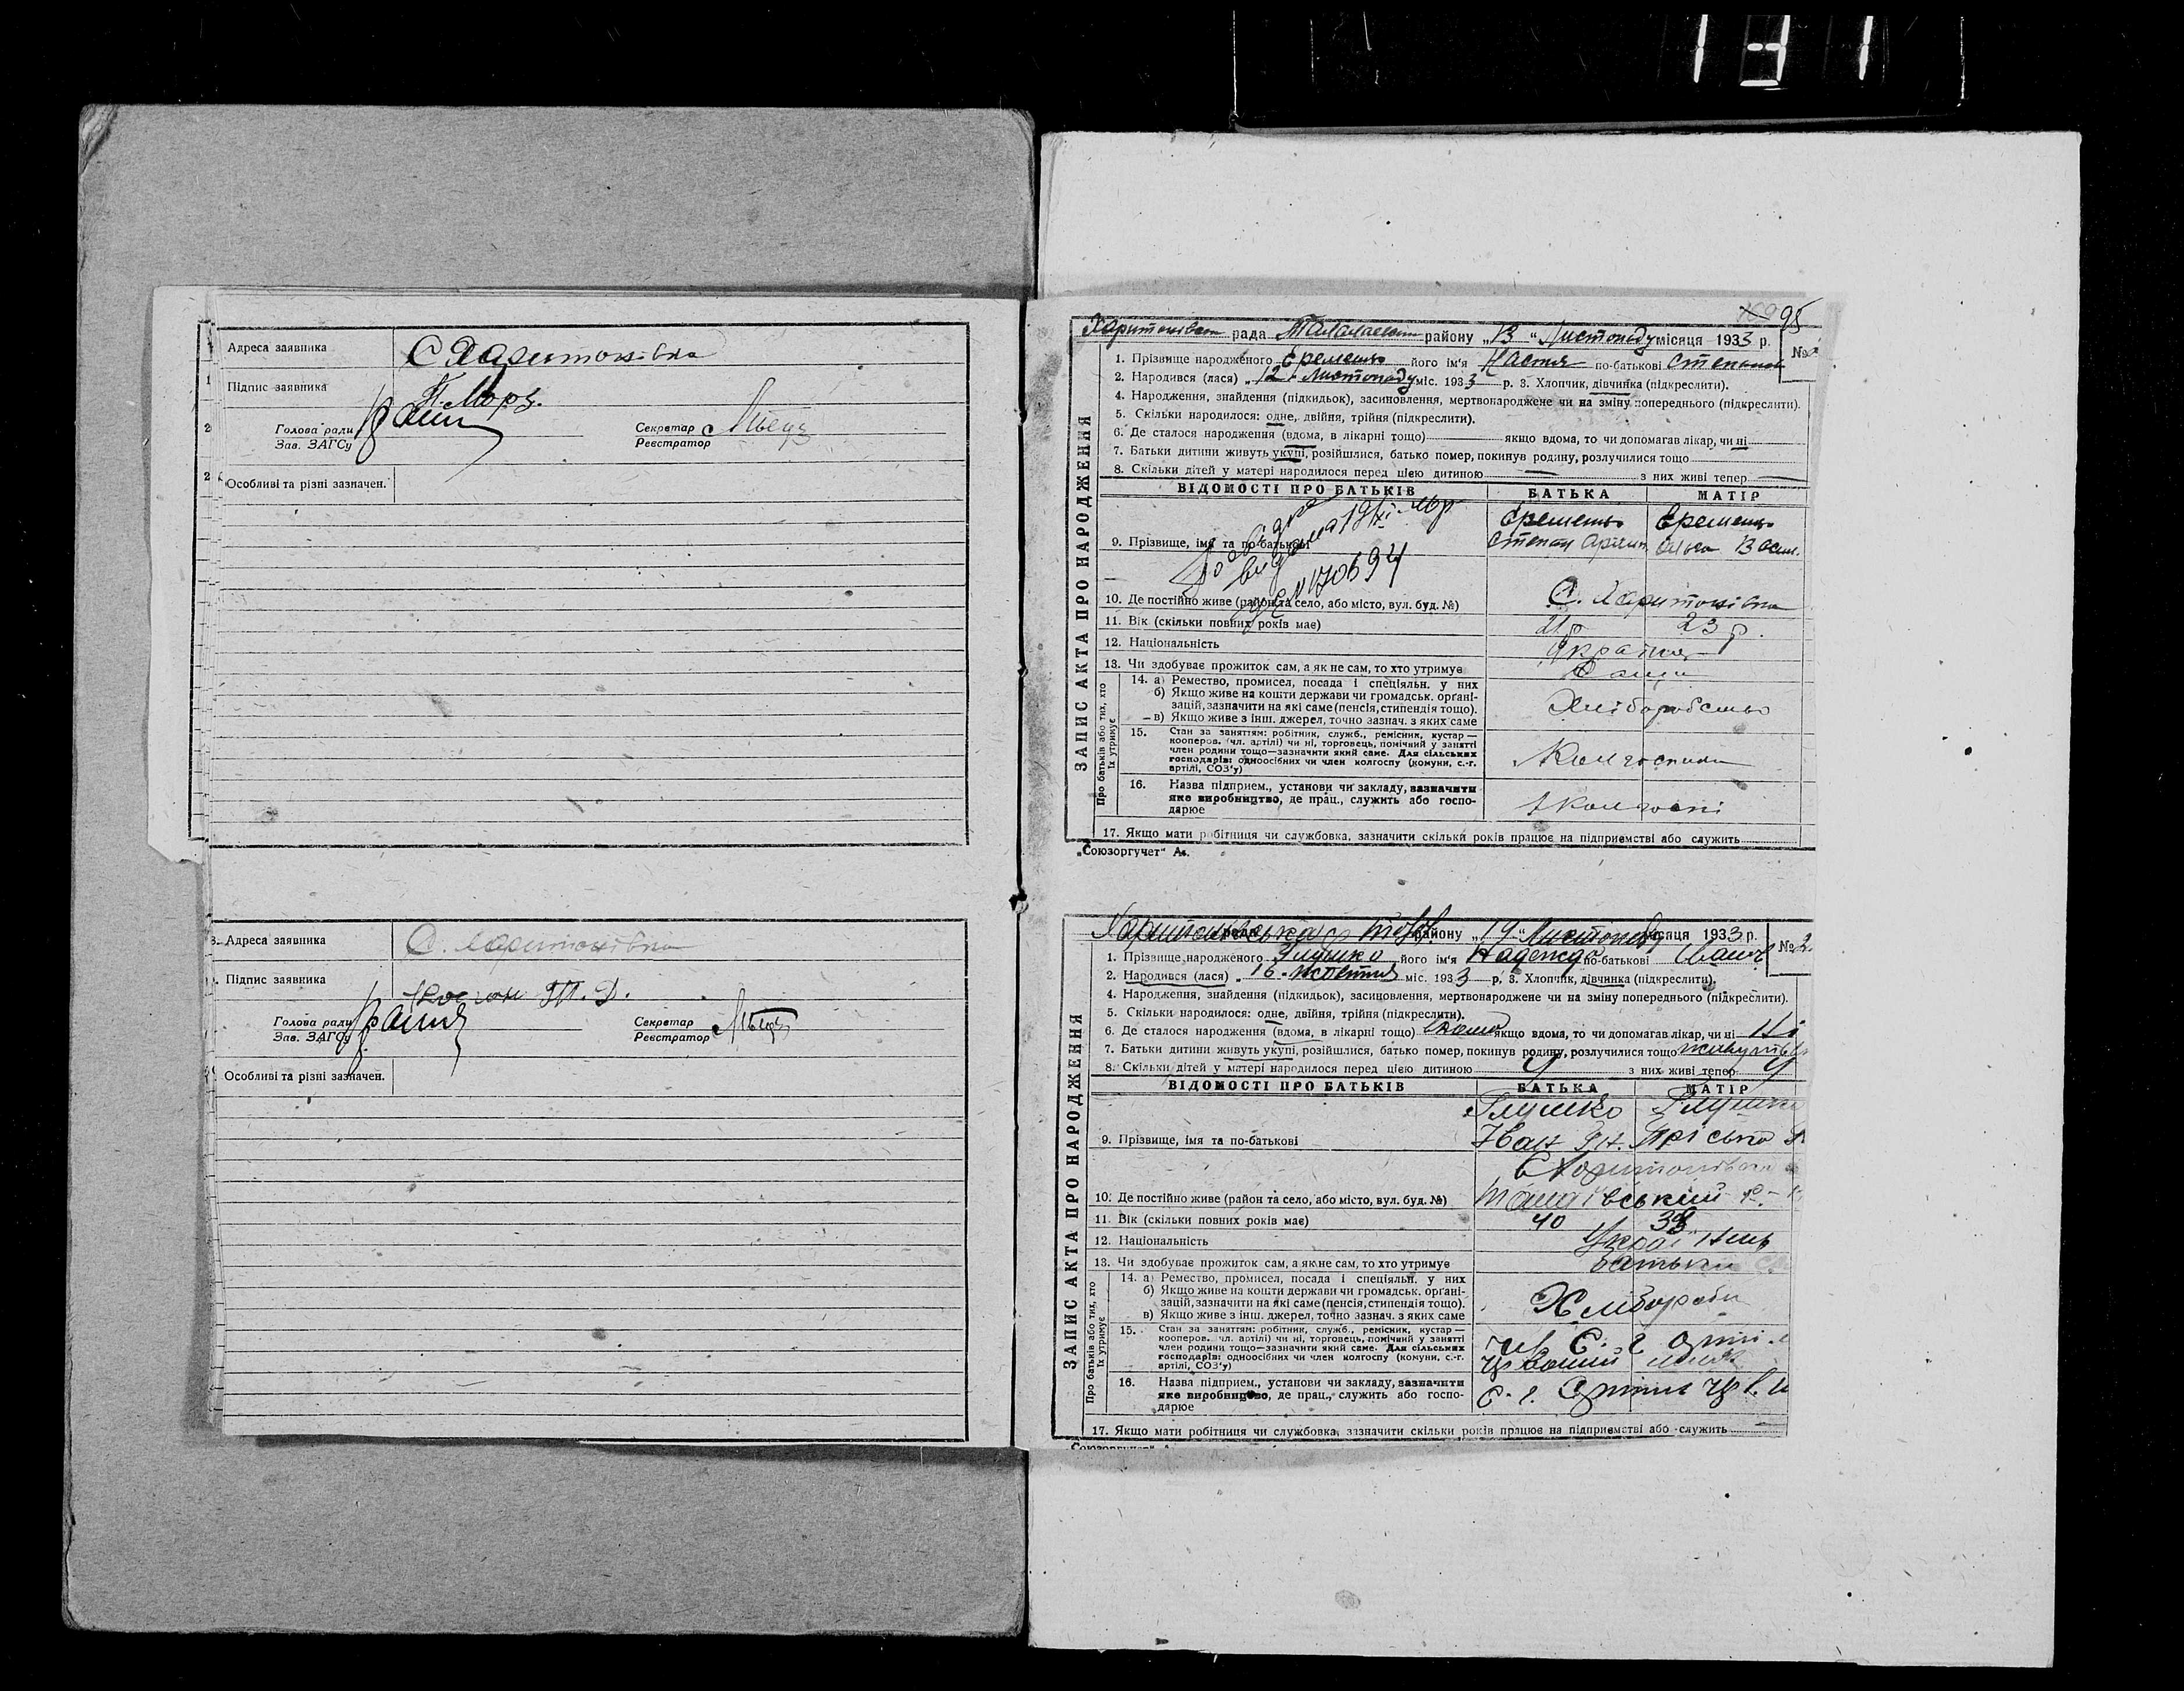 131
Адреса заявника С Харитонівка
Підпис заявника П. Мороз.
Голова ради
Зав. ЗАГСу
Секретар
Реєстратор
Особливі та різні зазначен.
3. Адреса заявника С. Харитонівка
Підпис заявника
Голова ради
Зав. ЗАГСу
Секретар
Реєстратор
Особливі та різні зазначен.
95
рада району „13 “ Листопаду місяця 1933 р. №
1. Прізвище народженого Єременко його ім'я Настя по-батькові Степанів
2. Народився (лася) „12“ Листопаду міс. 1933 р. 3. Хлопчик, дівчинка (підкреслити).
4. Народження, знайдення (підкидьок), засиновлення, мертвонароджене чи на зміну попереднього (підкреслити).
5. Скільки народилося: одне, двійня, трійня (підкреслити).
6. Де сталося народження (вдома, в лікарні тощо) якщо вдома, то чи допомагав лікар, чи ні
7. Батьки дитини живуть укупі, розійшлися, батько помер, покинув родину, розлучилися тощо
8. Скільки дітей у матері народилося перед цією дитиною — з них живі тепер —
ЗАПИС АКТА ПРО НАРОДЖЕННЯ
ВІДОМОСТІ ПРО БАТЬКІВ БАТЬКА МАТІР
Єременко Єременко
9. Прізвище, імя та по-батькові Степан Архип. Ольга Васил.
видана
№ 170694
С. Харитонівка
10. Де постійно живе (район та село, або місто, вул. буд. №)
11. Вік (скільки повних років має) 21 р 23 р.
12. Національність
13. Чи здобуває прожиток сам, а як не сам, то хто утримує
Про батьків або тих, хто їх утримує
14. а) Ремество, промисел, посада і спеціяльн. у них
б) Якщо живе на кошти держави чи громадськ. органі-
зацій, зазначити на які саме (пенсія, стипендія тощо). Хліборобство
в) Якщо живе з інш. джерел, точно зазнач. з яких саме
15. Стан за заняттям: робітник, служб., ремісник, кустар —
кооперов. (чл. артілі) чи ні, торговець, помічний у занятті
член родини тощо—зазначити який саме. Для сільських
господарів: одноосібних чи член колгоспу (комуни, с.-г.
артілі, СОЗ'у)
16. Назва підприєм., установи чи закладу, зазначити
яке виробництво, де прац., служить або госпо-
дарює в колгоспі
17. Якщо мати робітниця чи службовка, зазначити скільки років працює на підприємстві або служить
„Союзоргучет“
Харитонівська рада району „19“ Листопаду місяця 1933 р. №
1. Прізвище народженого Глушко його ім'я Надежда по-батькові Іванів
2. Народився (лася) „16“ жовтня міс. 1933 р. 3. Хлопчик, дівчинка (підкреслити).
4. Народження, знайдення (підкидьок), засиновлення, мертвонароджене чи на зміну попереднього (підкреслити).
5. Скільки народилося: одне, двійня, трійня (підкреслити).
6. Де сталося народження (вдома, в лікарні тощо) вдома якщо вдома, то чи допомагав лікар, чи ні Ні
7. Батьки дитини живуть укупі, розійшлися, батько помер, покинув родину, розлучилися тощо живуть
8. Скільки дітей у матері народилося перед цією дитиною 4 з них живі тепер 4
ЗАПИС АКТА ПРО НАРОДЖЕННЯ
ВІДОМОСТІ ПРО БАТЬКІВ БАТЬКА МАТІР
Глушко Глушко
9. Прізвище, імя та по-батькові Іван Пріська
С Харитонівка
10. Де постійно живе (район та село, або місто, вул. буд. №)
11. Вік (скільки повних років має) 40 38
12. Національність
13. Чи здобуває прожиток сам, а як не сам, то хто утримує батьки
Про батьків або тих, хто їх утримує
14. а) Ремество, промисел, посада і спеціяльн. у них
б) Якщо живе на кошти держави чи громадськ. органі-
зацій, зазначити на які саме (пенсія, стипендія тощо). Хлібороби
в) Якщо живе з інш. джерел, точно зазнач. з яких саме
15. Стан за заняттям: робітник, служб., ремісник, кустар —
кооперов. чл. артілі) чи ні, торговець, помічний у занятті
член родини тощо—зазначити який саме. Для сільських
господарів: одноосібних чи член колгоспу (комуни, с.-г.
артілі, СОЗ'у)
16. Назва підприєм., установи чи закладу, зазначити
яке виробництво, де прац., служить або госпо-
дарює
17. Якщо мати робітниця чи службовка, зазначити скільки років працює на підприємстві або служить